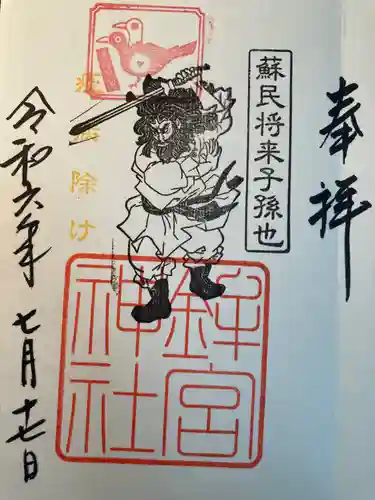 奉拝
蘇民将来子孫也
疫病除け
鉾宮
神社
令和六年 七月十七日